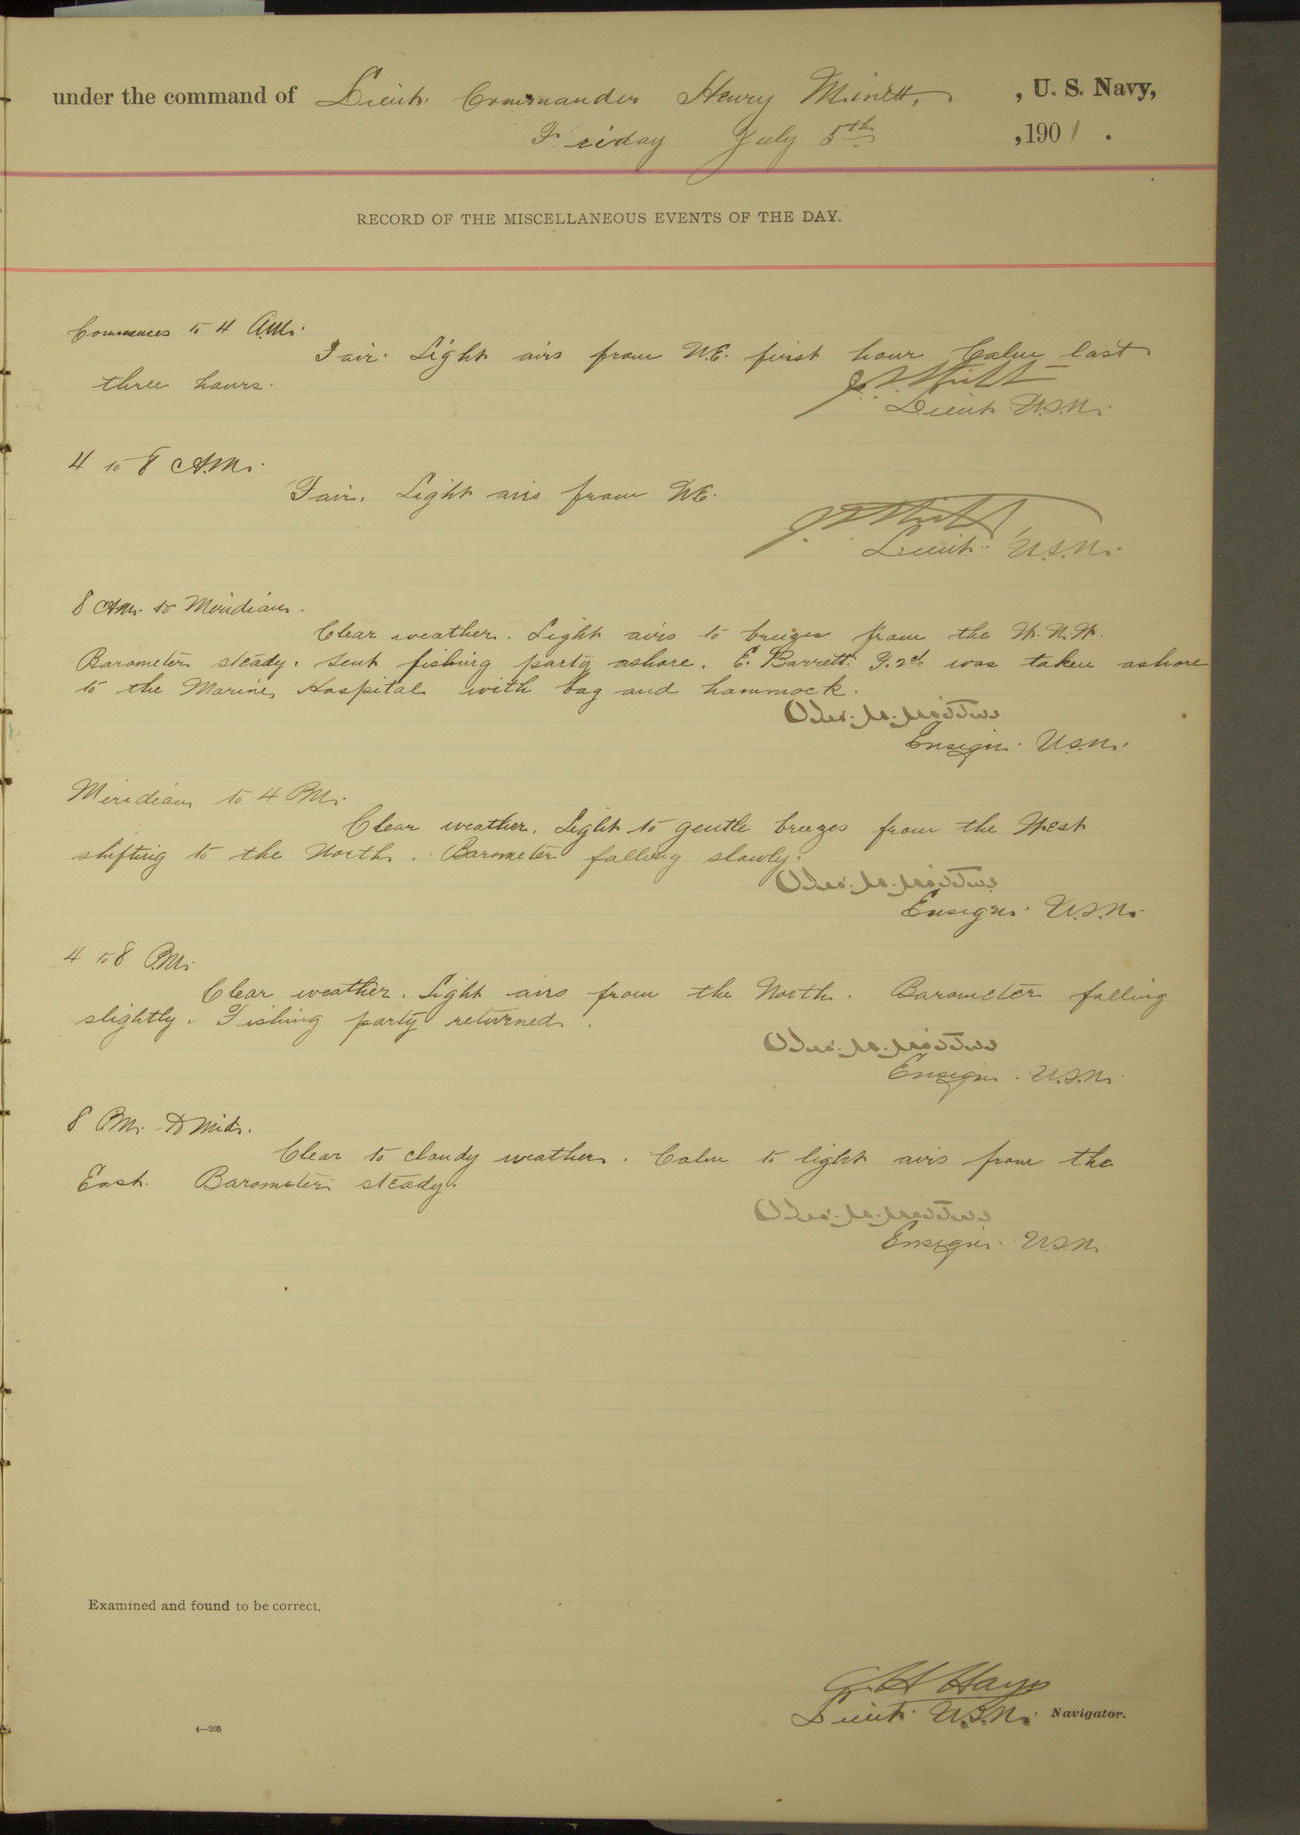 under the command of Lieut. Commander Henry Minett, , U. S. Navy,
Friday July 5th , 1901 .
RECORD OF THE MISCELLANEOUS EVENTS OF THE DAY.
Commences to 4 A.M.
Fair. Light airs from N.E. first hour Calm last
three hours.
Lieut. U.S.N.
4 to 8 A.M.
Fair. Light airs from N.E.
Lieut. U.S.N.
8 A.M. to Meridian.
Clear weather. Light airs to breezes from the W.N.W.
Barometer steady. Sent fishing party ashore. E. Barrett. F. 2cl. was taken ashore
to the Marine Hospital with bag and hammock.
Ensign. U.S.N.
Meridian to 4 P.M.
Clear weather. Light to gentle breezes from the West
shifting to the North. Barometer falling slowly.
Ensign. U.S.N.
4 to 8 P.M.
Clear weather. Light airs from the North. Barometer falling
slightly. Fishing party returned.
Ensign. U.S.N.
8 P.M. to Mid.
Clear to cloudy weather. Calm to light airs from the
East. Barometer steady.
Ensign. U.S.N.
Examined and found to be correct.
C. H. Hays
Lieut. U.S.N. Navigator.
4—265